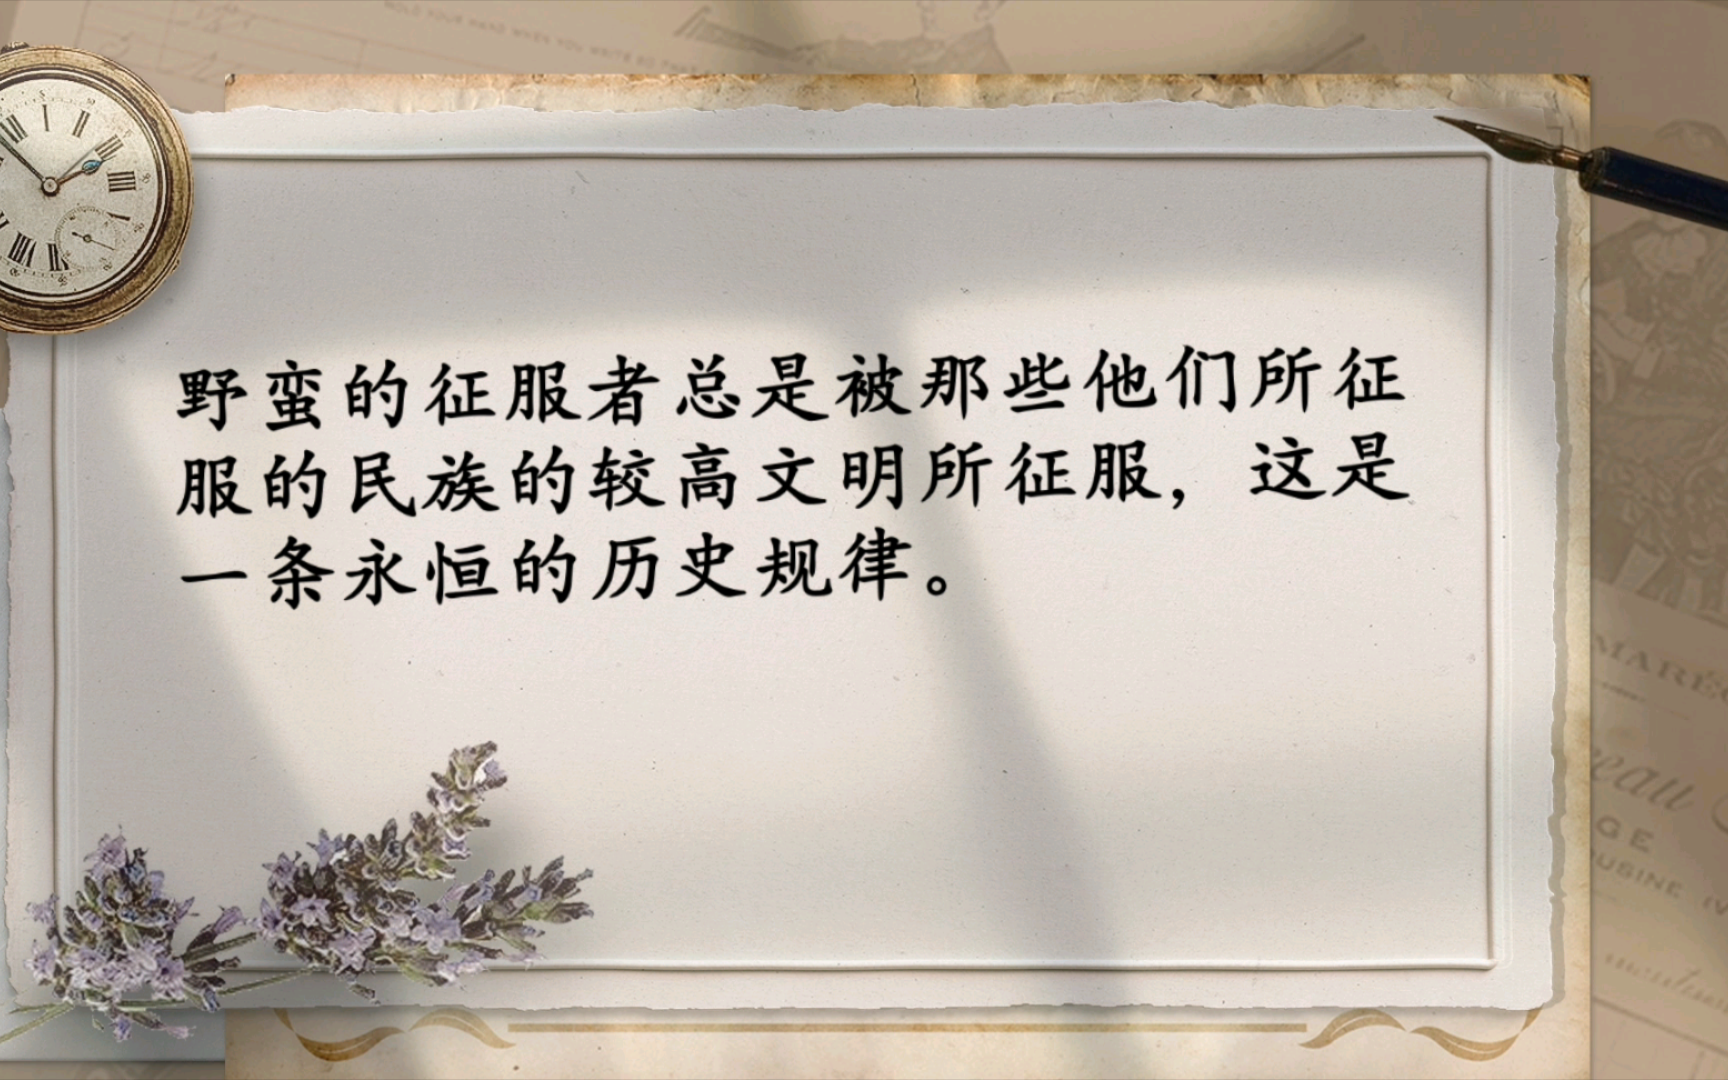 野蛮的征服者总是被那些他们所征
服的民族的较高文明所征服，这是
一条永恒的历史规律。
MARE
eau
GE
USINE